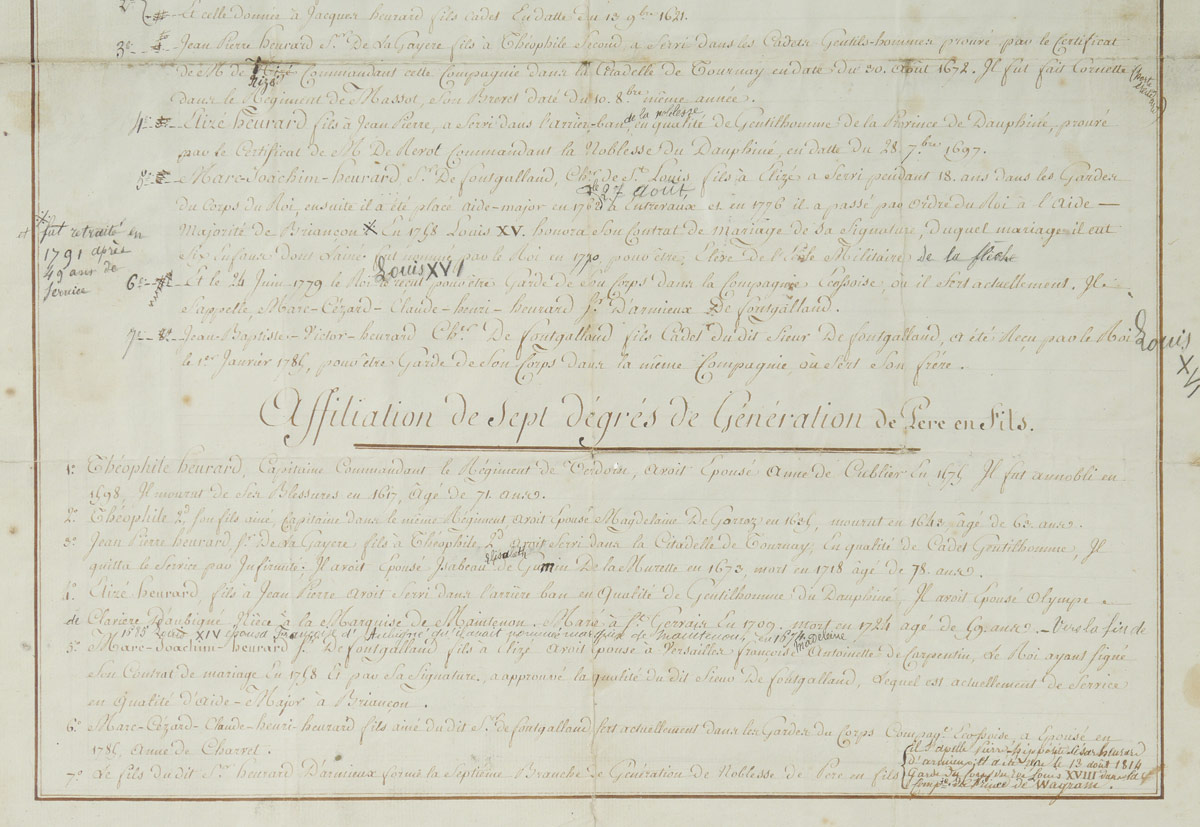 2º
Et celle donnée à Jacques heurard fils cadet En datte du 13 9bre 1621.
3º Jean Pierre heurard Sr. de La Gayere fils à Théophile Second, a Servi dans les Cadets Gentils-hommes prouvé par le Certificat
de Mr. de Commandant cette Compagnie dans la Citadelle de Tournay en date du 30. Août 1672. Il fut fait Cornette
dans le Régiment de Massot, Son Brevet daté du 10. 8bre même année.
de la noblesse
4º Elizé heurard fils à Jean Pierre, a Servi dans l'arrière-ban, en qualité de Gentilhomme de la Province de Dauphiné, prouvé
par le Certificat de Mr. De Revot Commandant la Noblesse du Dauphiné, en datte du 28 7bre 1697.
5º Marc-Joachim-heurard Sr. De fontgalland, Cher. de St. Louis fils à Elizé a Servi pendant 18. ans dans les Gardes
le 27 août
du Corps du Roi, ensuite il a été placé aide-major en 1762 à Entrevaux et en 1776 il a passé par ordre du Roi à l'Aide-
Majorité de Briançon ⨳ En 1758 Louis XV. honora Son Contrat de mariage de Sa Signature, duquel mariage il eut
⨳ fut retraité en
1791 après
49 ans de
service
Six Enfans dont L'ainé fut nommé par le Roi en 1770 pour être Elève de l'Ecole Militaire de la flèche
Louis XVI
6º Et le 24 Juin 1779 le Roi le reçut pour être Garde de Son Corps dans la Compagnie Ecossoise, où il Sert actuellement. Il
S'appelle, Marc-Cézard-Claude-henri-heurard Sr. D'armieux De Fontgalland.
7º Jean-Baptiste-Victor-heurard Cher. De fontgalland fils Cadet du dit Sieur De fontgalland, a été Reçu par le Roi Louis XVI
le 1er Janvier 1785, pour être Garde de Son Corps dans la même Compagnie où Sert Son frère.
Affiliation de Sept dégrés de Génération de Pere en Fils.
1º Théophile heurard, Capitaine Commandant le Régiment de Verdoin, avoit Epousé Anne de Cublier En 1575 Il fut annobli en
1598, Il mourut de Ses Blessures en 1617, Agé de 71. ans.
2º Théophile 2d, Son fils ainé, Capitaine dans le même Régiment avoit Epousé Magdelaine De Gorroz en 1635, mourut en 1643 âgé de 63 ans.
3º Jean Pierre heurard Sr. De La Gayere fils à Théophile 2d Avoit Servi dans la Citadelle de Tournay, En qualité de Cadet Gentilhomme, Il
Elisabeth
quitta le Service par Infirmité. Il avoit Epousé Isabeau de Gumin De la Murette en 1673, mort en 1718 âgé de 78. ans.
4º Elizé heurard, fils à Jean Pierre avoit Servi dans l'arrière ban en Qualité de Gentilhomme du Dauphiné, Il avoit Epousé Olympe
de Clavière D'aubigné Nièce à la Marquise de Maintenon. Marié à St. Gervais En 1709. mort en 1724 agé de ans - Vers la fin de
1685 Louis XIV épousa Françoise d'Aubigné qu'il avait nommée marquise de Maintenon, en 1674
Madeleine
5º Marc-Joachim-heurard Sr. De fontgalland fils à Elizé avoit Epousé à Versailles françoise Antoinette de Carpentin, Le Roi ayant Signé
Son Contrat de mariage En 1758 Et par Sa Signature, a approuvé la qualité du dit Sieur De fontgalland, Lequel est actuellement de Service
en Qualité d'Aide-Major à Briançon.
6º Marc-Cézard-Claude-henri-heurard fils ainé du dit Sr. de fontgalland Sert actuellement dans les Gardes du Corps Compage. Ecossoise, a Epousé en
1785, Anne de Charvet.
7º Le fils du dit Sr. heurard D'armieux forme la Septième Branche de Génération de Noblesse de Pere en fils
il s'apelle Pierre hippolite César heurard
d'armieux il a été le 13 août 1814
Garde du Corps du roi Louis XVIII dans la
Compie. du Prince de Wagram.